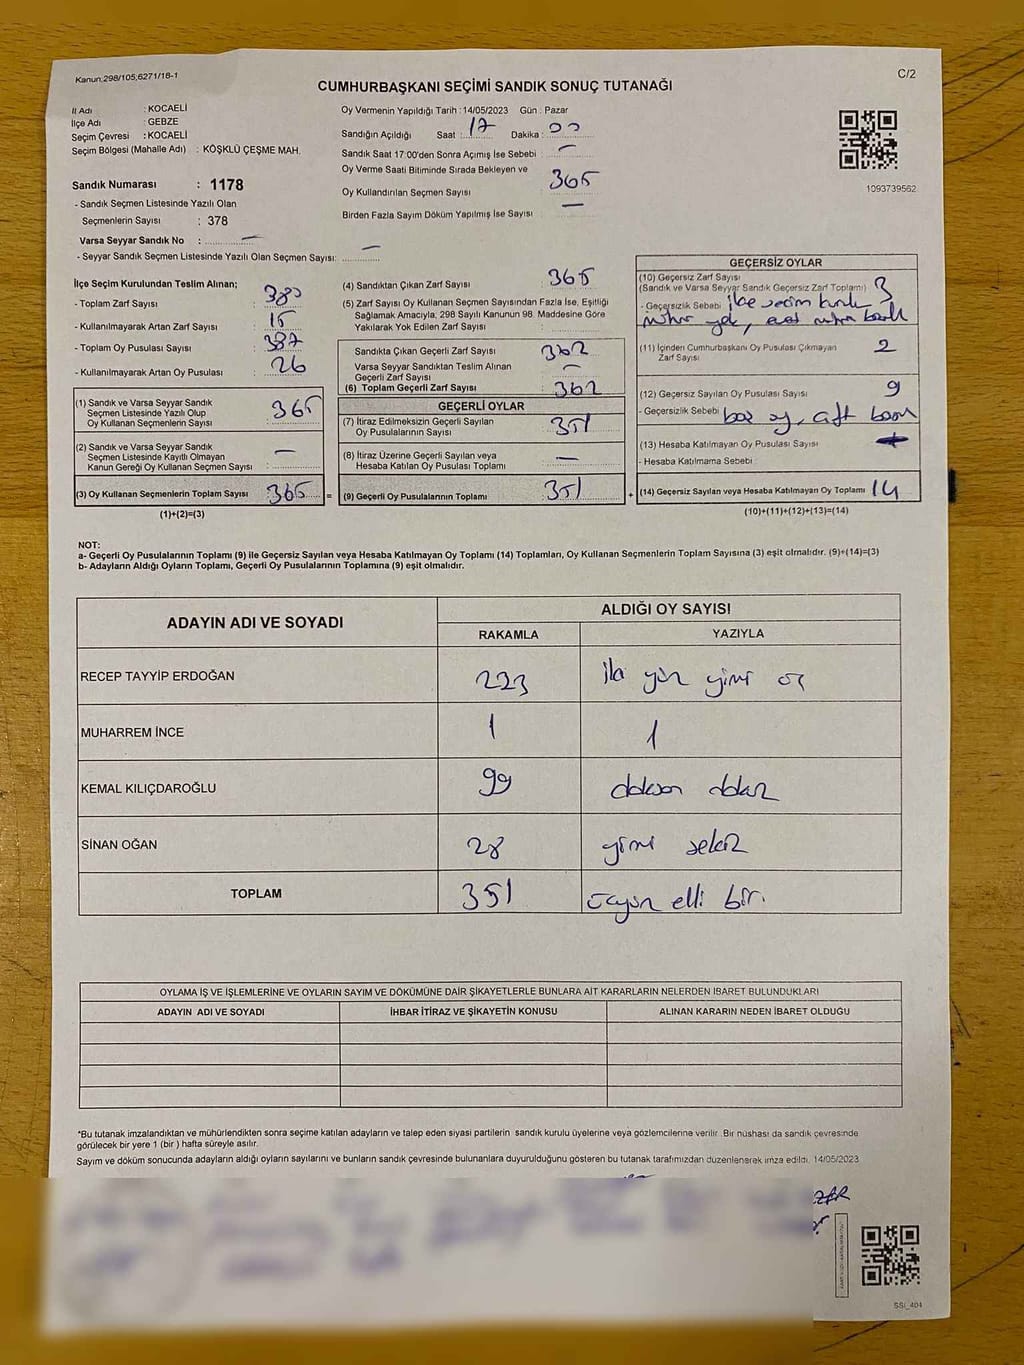 Kanun:298/105;6271/18-1
C/2
CUMHURBAŞKANI SEÇİMİ SANDIK SONUÇ TUTANAĞI
İl Adı : KOCAELİ
İlçe Adı : GEBZE
Seçim Çevresi : KOCAELİ
Seçim Bölgesi (Mahalle Adı) : KÖŞKLÜ ÇEŞME MAH.
Sandık Numarası : 1178
- Sandık Seçmen Listesinde Yazılı Olan
Seçmenlerin Sayısı : 378
Varsa Seyyar Sandık No : —
- Seyyar Sandık Seçmen Listesinde Yazılı Olan Seçmen Sayısı: —
Oy Vermenin Yapıldığı Tarih : 14/05/2023 Gün : Pazar
Sandığın Açıldığı Saat : 17 Dakika : 00
Sandık Saat 17:00'den Sonra Açımış İse Sebebi : —
Oy Verme Saati Bitiminde Sırada Bekleyen ve
Oy Kullandırılan Seçmen Sayısı : 365
Birden Fazla Sayım Döküm Yapılmış İse Sayısı : —
1093739562
İlçe Seçim Kurulundan Teslim Alınan;
- Toplam Zarf Sayısı : 380
- Kullanılmayarak Artan Zarf Sayısı : 15
- Toplam Oy Pusulası Sayısı : 387
- Kullanılmayarak Artan Oy Pusulası : 26
(1) Sandık ve Varsa Seyyar Sandık
Seçmen Listesinde Yazılı Olup
Oy Kullanan Seçmenlerin Sayısı : 365
(2) Sandık ve Varsa Seyyar Sandık
Seçmen Listesinde Kayıtlı Olmayan
Kanun Gereği Oy Kullanan Seçmen Sayısı : —
(3) Oy Kullanan Seçmenlerin Toplam Sayısı : 365 =
(1)+(2)=(3)
(4) Sandıktan Çıkan Zarf Sayısı : 365
(5) Zarf Sayısı Oy Kullanan Seçmen Sayısından Fazla İse, Eşitliği
Sağlamak Amacıyla, 298 Sayılı Kanunun 98. Maddesine Göre
Yakılarak Yok Edilen Zarf Sayısı :
Sandıkta Çıkan Geçerli Zarf Sayısı : 362
Varsa Seyyar Sandıktan Teslim Alınan
Geçerli Zarf Sayısı : —
(6) Toplam Geçerli Zarf Sayısı : 362
GEÇERLİ OYLAR
(7) İtiraz Edilmeksizin Geçerli Sayılan
Oy Pusulalarının Sayısı : 351
(8) İtiraz Üzerine Geçerli Sayılan veya
Hesaba Katılan Oy Pusulası Toplamı : —
(9) Geçerli Oy Pusulalarının Toplamı : 351 +
GEÇERSİZ OYLAR
(10) Geçersiz Zarf Sayısı
(Sandık ve Varsa Seyyar Sandık Geçersiz Zarf Toplamı) : 3
- Geçersizlik Sebebi : ilçe seçim kurulu
mührü yok,
(11) İçinden Cumhurbaşkanı Oy Pusulası Çıkmayan
Zarf Sayısı 2
(12) Geçersiz Sayılan Oy Pusulası Sayısı : 9
- Geçersizlik Sebebi : boş oy, çift
(13) Hesaba Katılmayan Oy Pusulası Sayısı
- Hesaba Katılmama Sebebi
(14) Geçersiz Sayılan veya Hesaba Katılmayan Oy Toplamı 14
(10)+(11)+(12)+(13)=(14)
NOT:
a- Geçerli Oy Pusulalarının Toplamı (9) ile Geçersiz Sayılan veya Hesaba Katılmayan Oy Toplamı (14) Toplamları, Oy Kullanan Seçmenlerin Toplam Sayısına (3) eşit olmalıdır. (9)+(14)=(3)
b- Adayların Aldığı Oyların Toplamı, Geçerli Oy Pusulalarının Toplamına (9) eşit olmalıdır.
ADAYIN ADI VE SOYADI
ALDIĞI OY SAYISI
RAKAMLA YAZIYLA
RECEP TAYYİP ERDOĞAN 223 iki yüz yirmi üç
MUHARREM İNCE 1 1
KEMAL KILIÇDAROĞLU 99 doksan dokuz
SİNAN OĞAN 28 yirmi sekiz
TOPLAM 351 üçyüz elli bir.
OYLAMA İŞ VE İŞLEMLERİNE VE OYLARIN SAYIM VE DÖKÜMÜNE DAİR ŞİKAYETLERLE BUNLARA AİT KARARLARIN NELERDEN İBARET BULUNDUKLARI
ADAYIN ADI VE SOYADI İHBAR İTİRAZ VE ŞİKAYETİN KONUSU ALINAN KARARIN NEDEN İBARET OLDUĞU
*Bu tutanak imzalandıktan ve mühürlendikten sonra seçime katılan adayların ve talep eden siyasi partilerin sandık kurulu üyelerine veya gözlemcilerine verilir. Bir nüshası da sandık çevresinde
görülecek bir yere 1 (bir ) hafta süreyle asılır.
Sayım ve döküm sonucunda adayların aldığı oyların sayılarını ve bunların sandık çevresinde bulunanlara duyurulduğunu gösteren bu tutanak tarafımızdan düzenlenerek imza edildi. 14/05/2023
SSİ_404